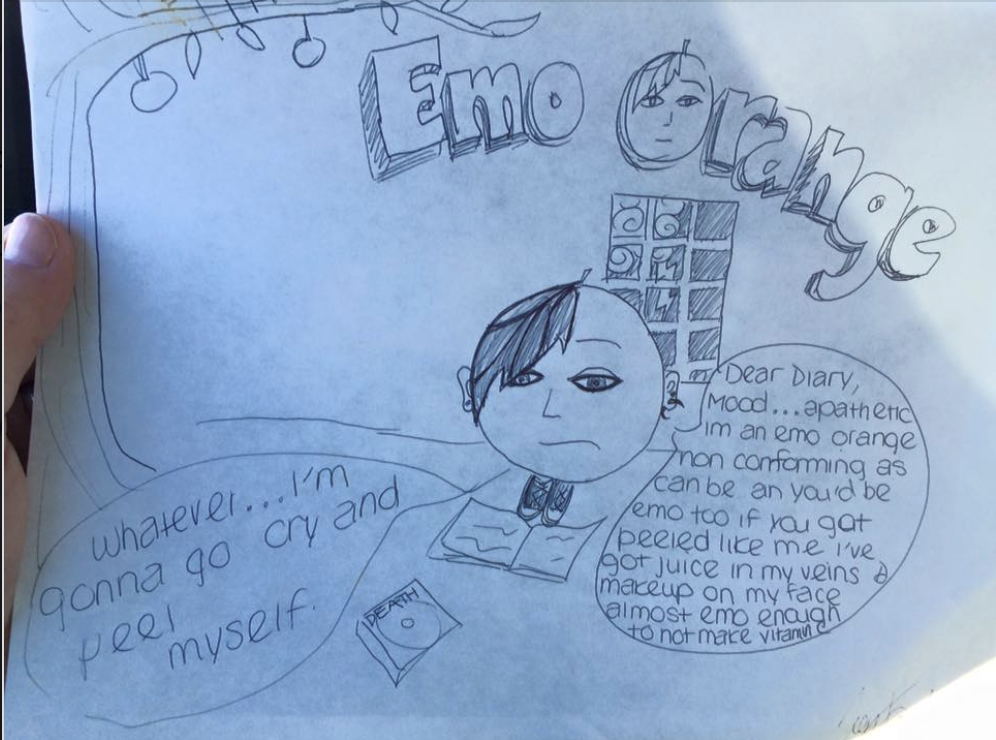 Emo Orange
Dear Diary,
Mood...apathetic
im an emo orange
non conforming as
can be an you'd be
emo too if you got
peeled like me I've
got juice in my veins &
makeup on my face
almost emo enough
to not make vitamin C
whatever...I'm
gonna go cry and
peel
myself.
DEATH